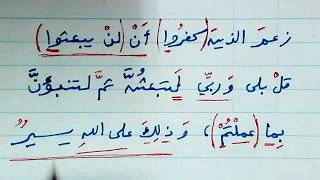 زعمَ الذينَ (كفرُوا) أَنْ (لنْ يبعثوا)
قلْ بلى وَربِّي لَتبعثُنَّ ثمَّ لتنبؤنَّ
بِما (عملْتُمْ)، وَذلِكَ على اللهِ يسيرٌ